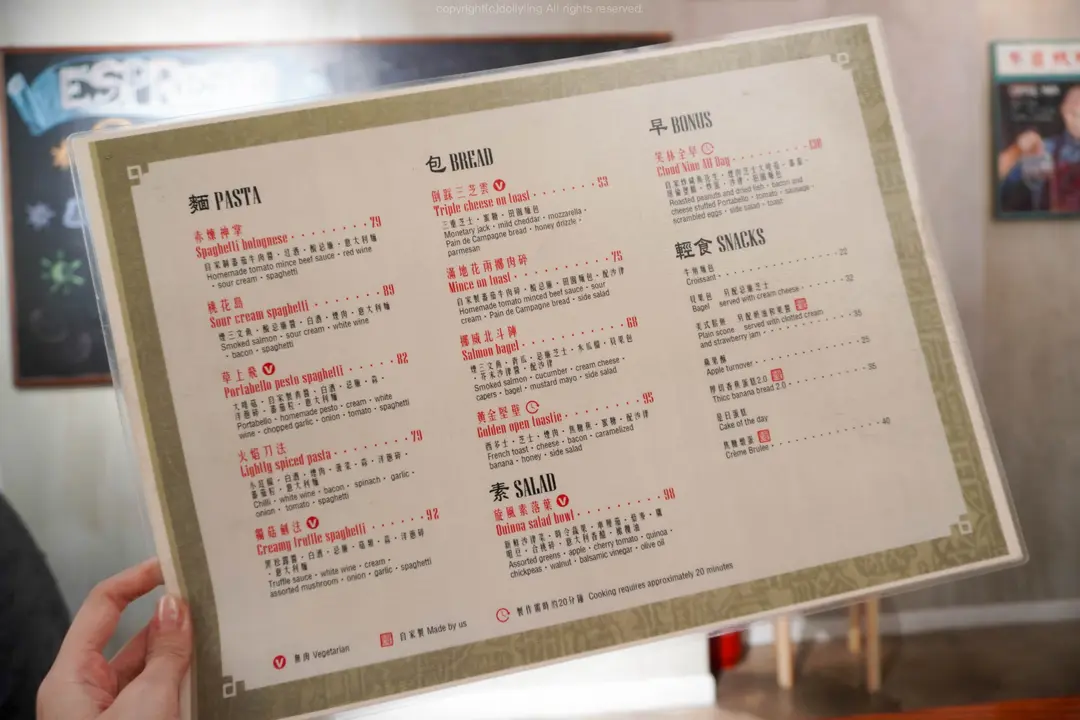 copyright(c)dollyling All rights reserved.
ESPRESSO
麵 PASTA
赤燶神掌
Spaghetti bolognese 79
自家製蕃茄牛肉醬・紅酒・酸忌廉・意大利麵
Homemade tomato mince beef sauce・red wine
・sour cream・spaghetti
桃花島
Sour cream spaghetti 89
煙三文魚・酸忌廉醬・白酒・煙肉・意大利麵
Smoked salmon・sour cream・white wine
・bacon・spaghetti
草上飛 V
Portabello pesto spaghetti 82
大啡菇・自家製青醬・白酒・忌廉・蒜・
洋蔥碎・蕃茄粒・意大利麵
Portabello・homemade pesto・cream・white
wine・chopped garlic・onion・tomato・spaghetti
火焰刀法
Lightly spiced pasta 79
白酒・煙肉・菠菜・蒜・洋蔥碎・
蕃茄粒・意大利麵
Chilli・white wine・bacon・spinach・garlic・
onion・tomato・spaghetti
獨菇劍法 V
Creamy truffle spaghetti 92
黑松露醬・白酒・忌廉・菇・蒜・洋蔥碎
・意大利麵
Truffle sauce・white wine・cream・
assorted mushroom・onion・garlic・spaghetti
包 BREAD
倒踩三芝雲 V
Triple cheese on toast 53
三重芝士・蜜糖・田園麵包
Monetary jack・mild cheddar・mozzarella・
Pain de Campagne bread・honey drizzle・
parmesan
滿地花雨擲肉碎
Mince on toast 75
自家製蕃茄牛肉碎・酸忌廉・田園麵包・配沙律
Homemade tomato minced beef sauce・sour
cream・Pain de Campagne bread・side salad
挪威北斗陣
Salmon bagel 68
煙三文魚・青瓜・忌廉芝士・水瓜榴・貝果包
・芥末沙律醬・配沙律
Smoked salmon・cucumber・cream cheese・
capers・bagel・mustard mayo・side salad
黃金堅壁
Golden open toastie 95
西多士・芝士・煙肉・焦糖蕉・蜜糖・配沙律
French toast・cheese・bacon・caramelized
banana・honey・side salad
素 SALAD
旋風素落葉 V
Quinoa salad bowl 98
新鮮沙律菜・時令蔬果・車厘茄・藜麥・鷹
咀豆・合桃碎・意大利香醋・橄欖油
Assorted greens・apple・cherry tomato・quinoa・
chickpeas・walnut・balsamic vinegar・olive oil
早 BONUS
笑林全早
Cloud Nine All Day 130
Roasted peanuts and dried fish・bacon and
cheese stuffed Portabello・tomato・sausage・
scrambled eggs・side salad・toast
輕食 SNACKS
牛角麵包 22
Croissant
貝果包 另配忌廉芝士 32
Bagel served with cream cheese
美式鬆餅 另配奶油和果醬
Plain scone served with clotted cream 35
and strawberry jam
蘋果酥 25
Apple turnover
厚切香蕉蛋糕2.0 35
Thicc banana bread 2.0
是日蛋糕
Cake of the day
焦糖燉蛋 40
Crème Brulee
V 無肉 Vegetarian
自家製 Made by us
製作需時約20分鐘 Cooking requires approximately 20 minutes